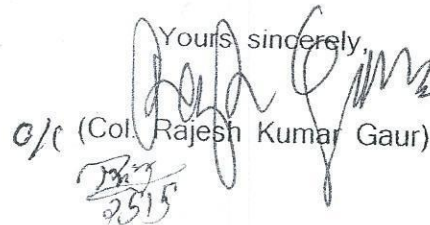 Yours sincerely,
O/C (Col. Rajesh Kumar Gaur)
2515